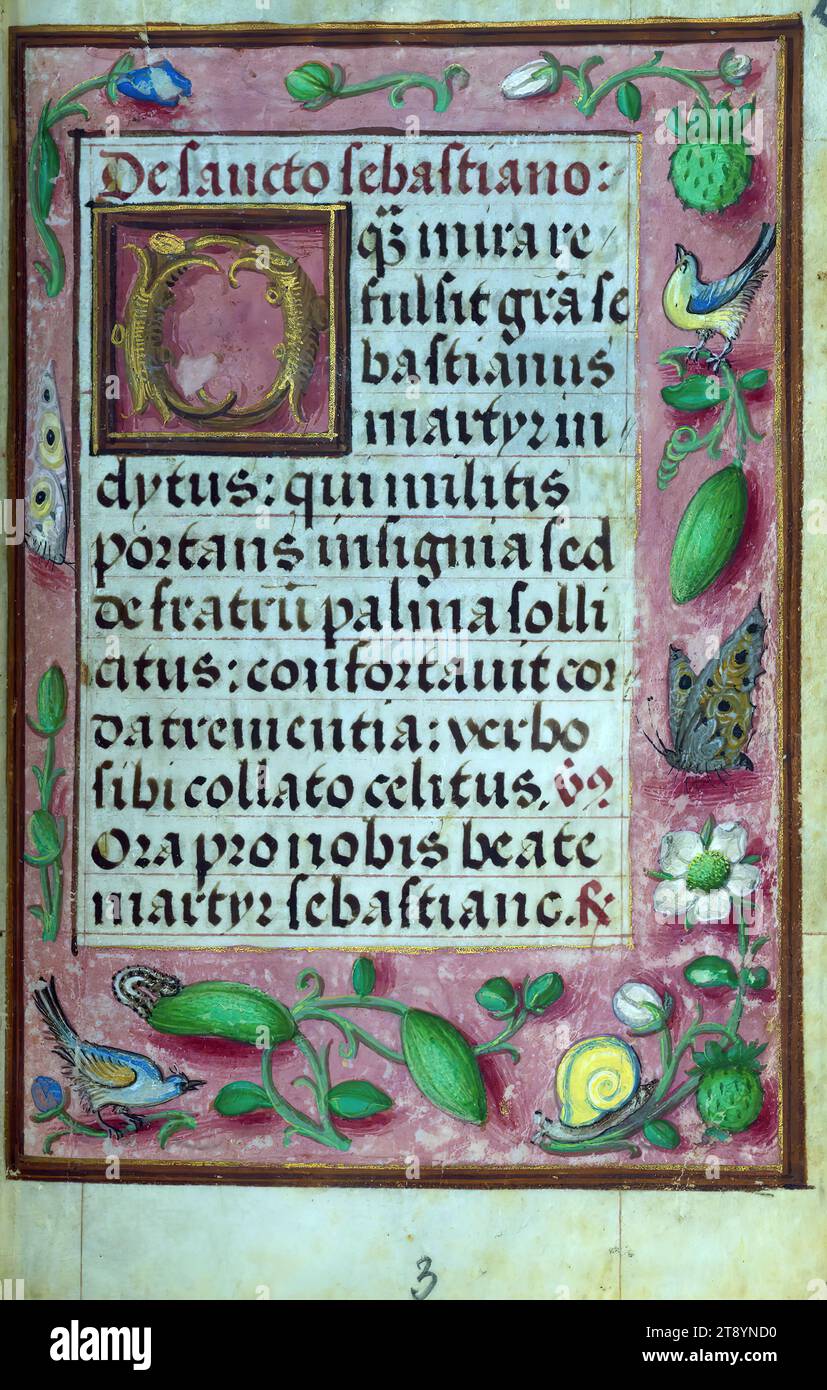 De sancto sebastiano:
O
q̃ȝ mira re
fulsit grã se
bastianus
martyr in
clytus: qui militis
portans insignia sed
de fratrũ palma solli
citus: confortavit cor
da trementia: verbo
sibi collato celitus. v̊9
Ora pro nobis beate
martyr sebastiane. ꝶ
3
a
alamy
Image ID: 2T8YND0
www.alamy.com